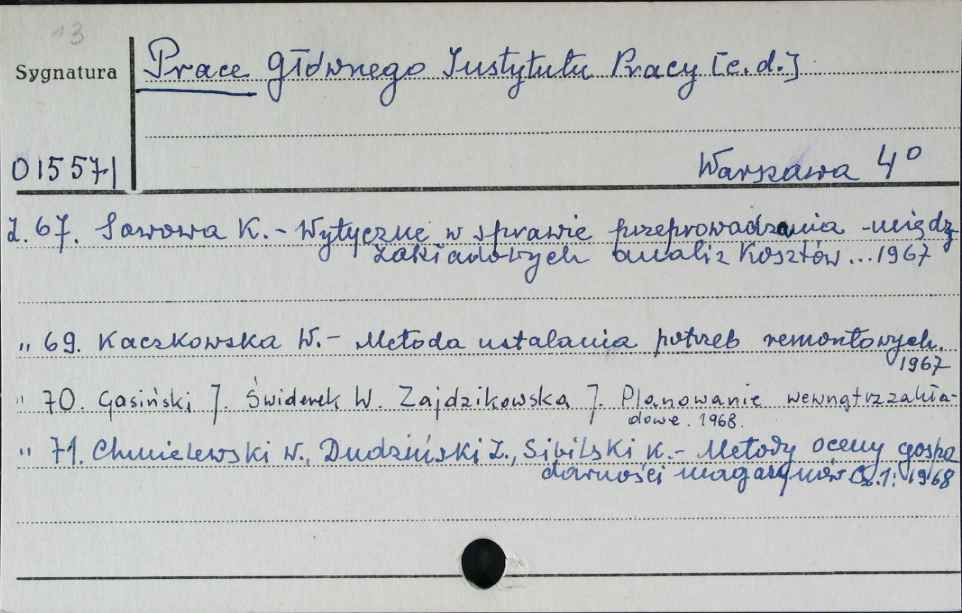 13
Sygnatura
Prace Głównego Instytutu Pracy [c.d.]
015571
Warszawa 4°
Z. 67. Sowowa K. - Wytyczne w sprawie przeprowadzania między
zakładowych analiz kosztów ... 1967
" 69. Kaczkowska W. - Metoda ustalania potrzeb remontowych.
1967
" 70. Gasiński J. Świderek W. Zajdzikowska J. Planowanie wewnątrzzakła-
dowe. 1968.
" 71. Chmielewski W., Dudziński Z., Sibilski K. - Metody oceny gospo
darności magazynów Cz. 1: 1968